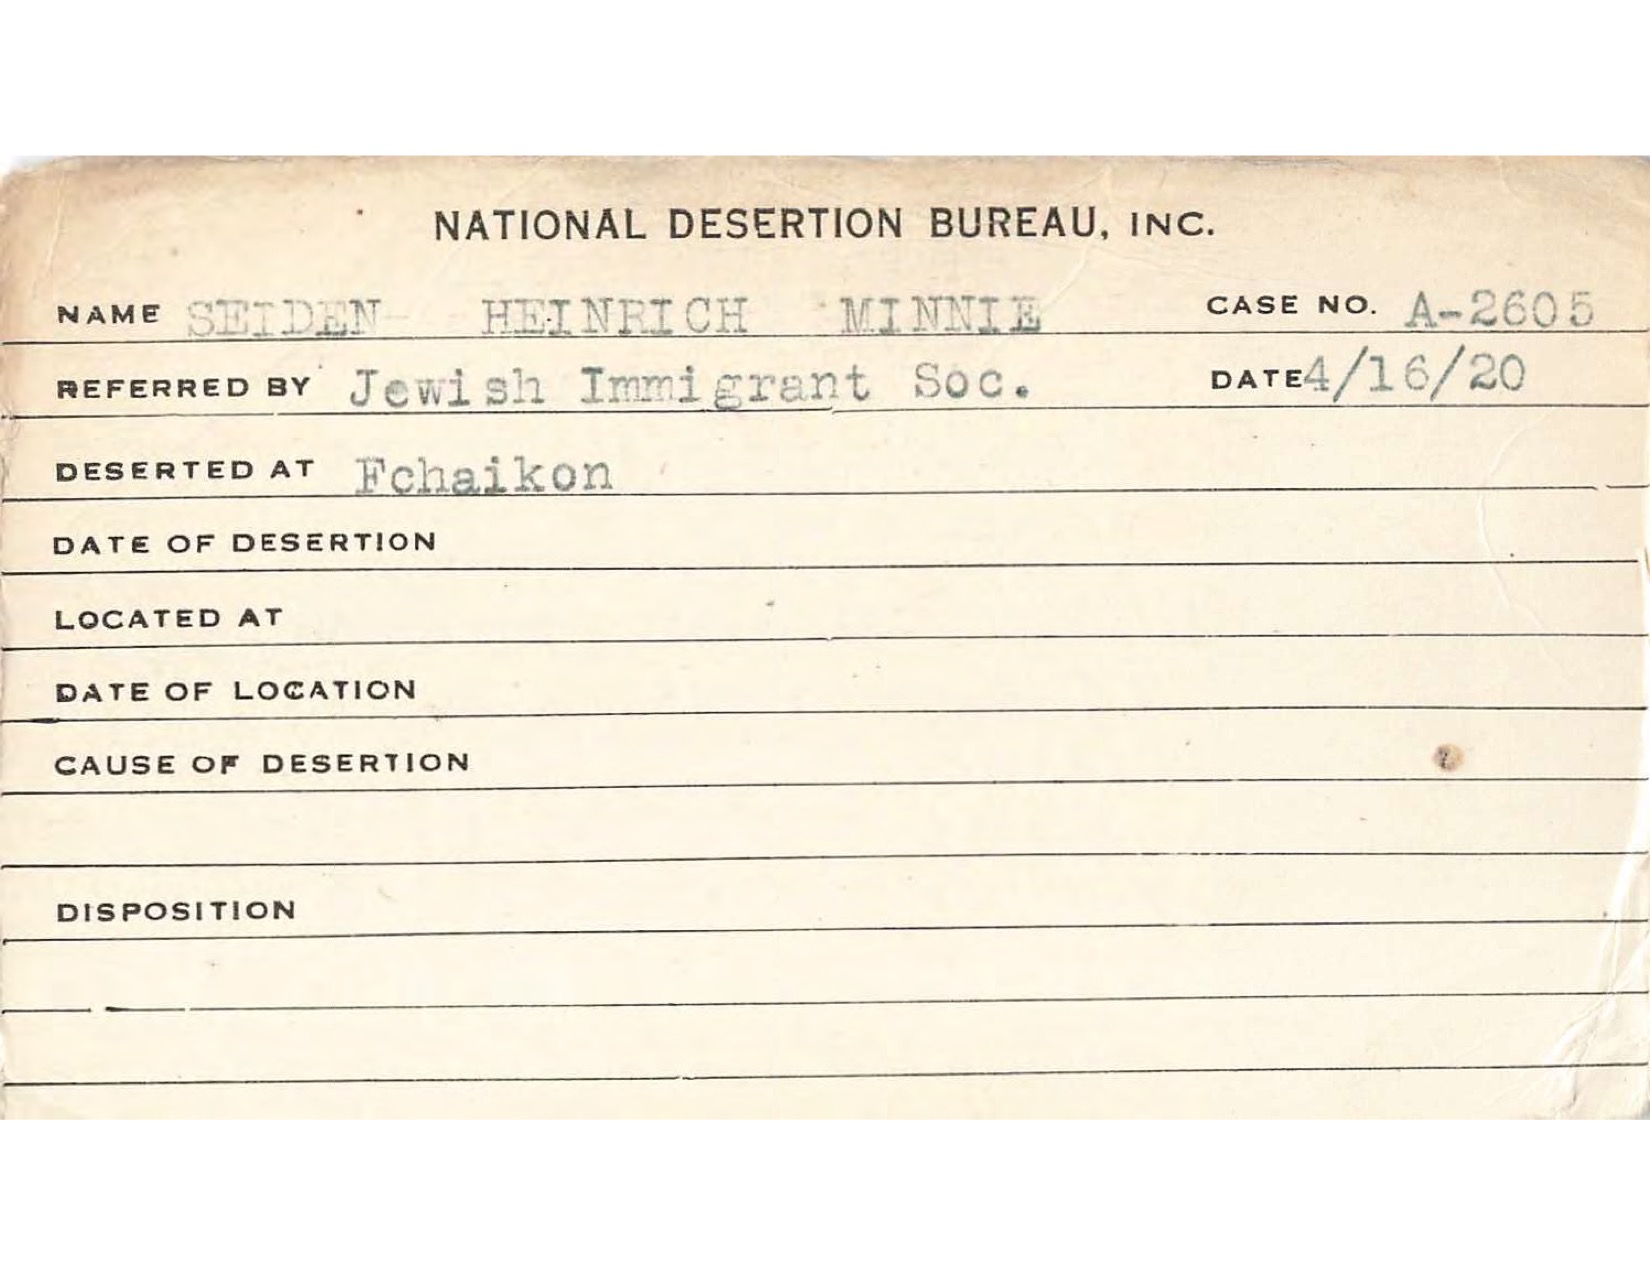 NATIONAL DESERTION BUREAU, INC.
NAME SEIDEN HEINRICH MINNIE CASE NO. A-2605
REFERRED BY Jewish Immigrant Soc. DATE 4/16/20
DESERTED AT Fchaikon
DATE OF DESERTION
LOCATED AT
DATE OF LOCATION
CAUSE OF DESERTION
DISPOSITION